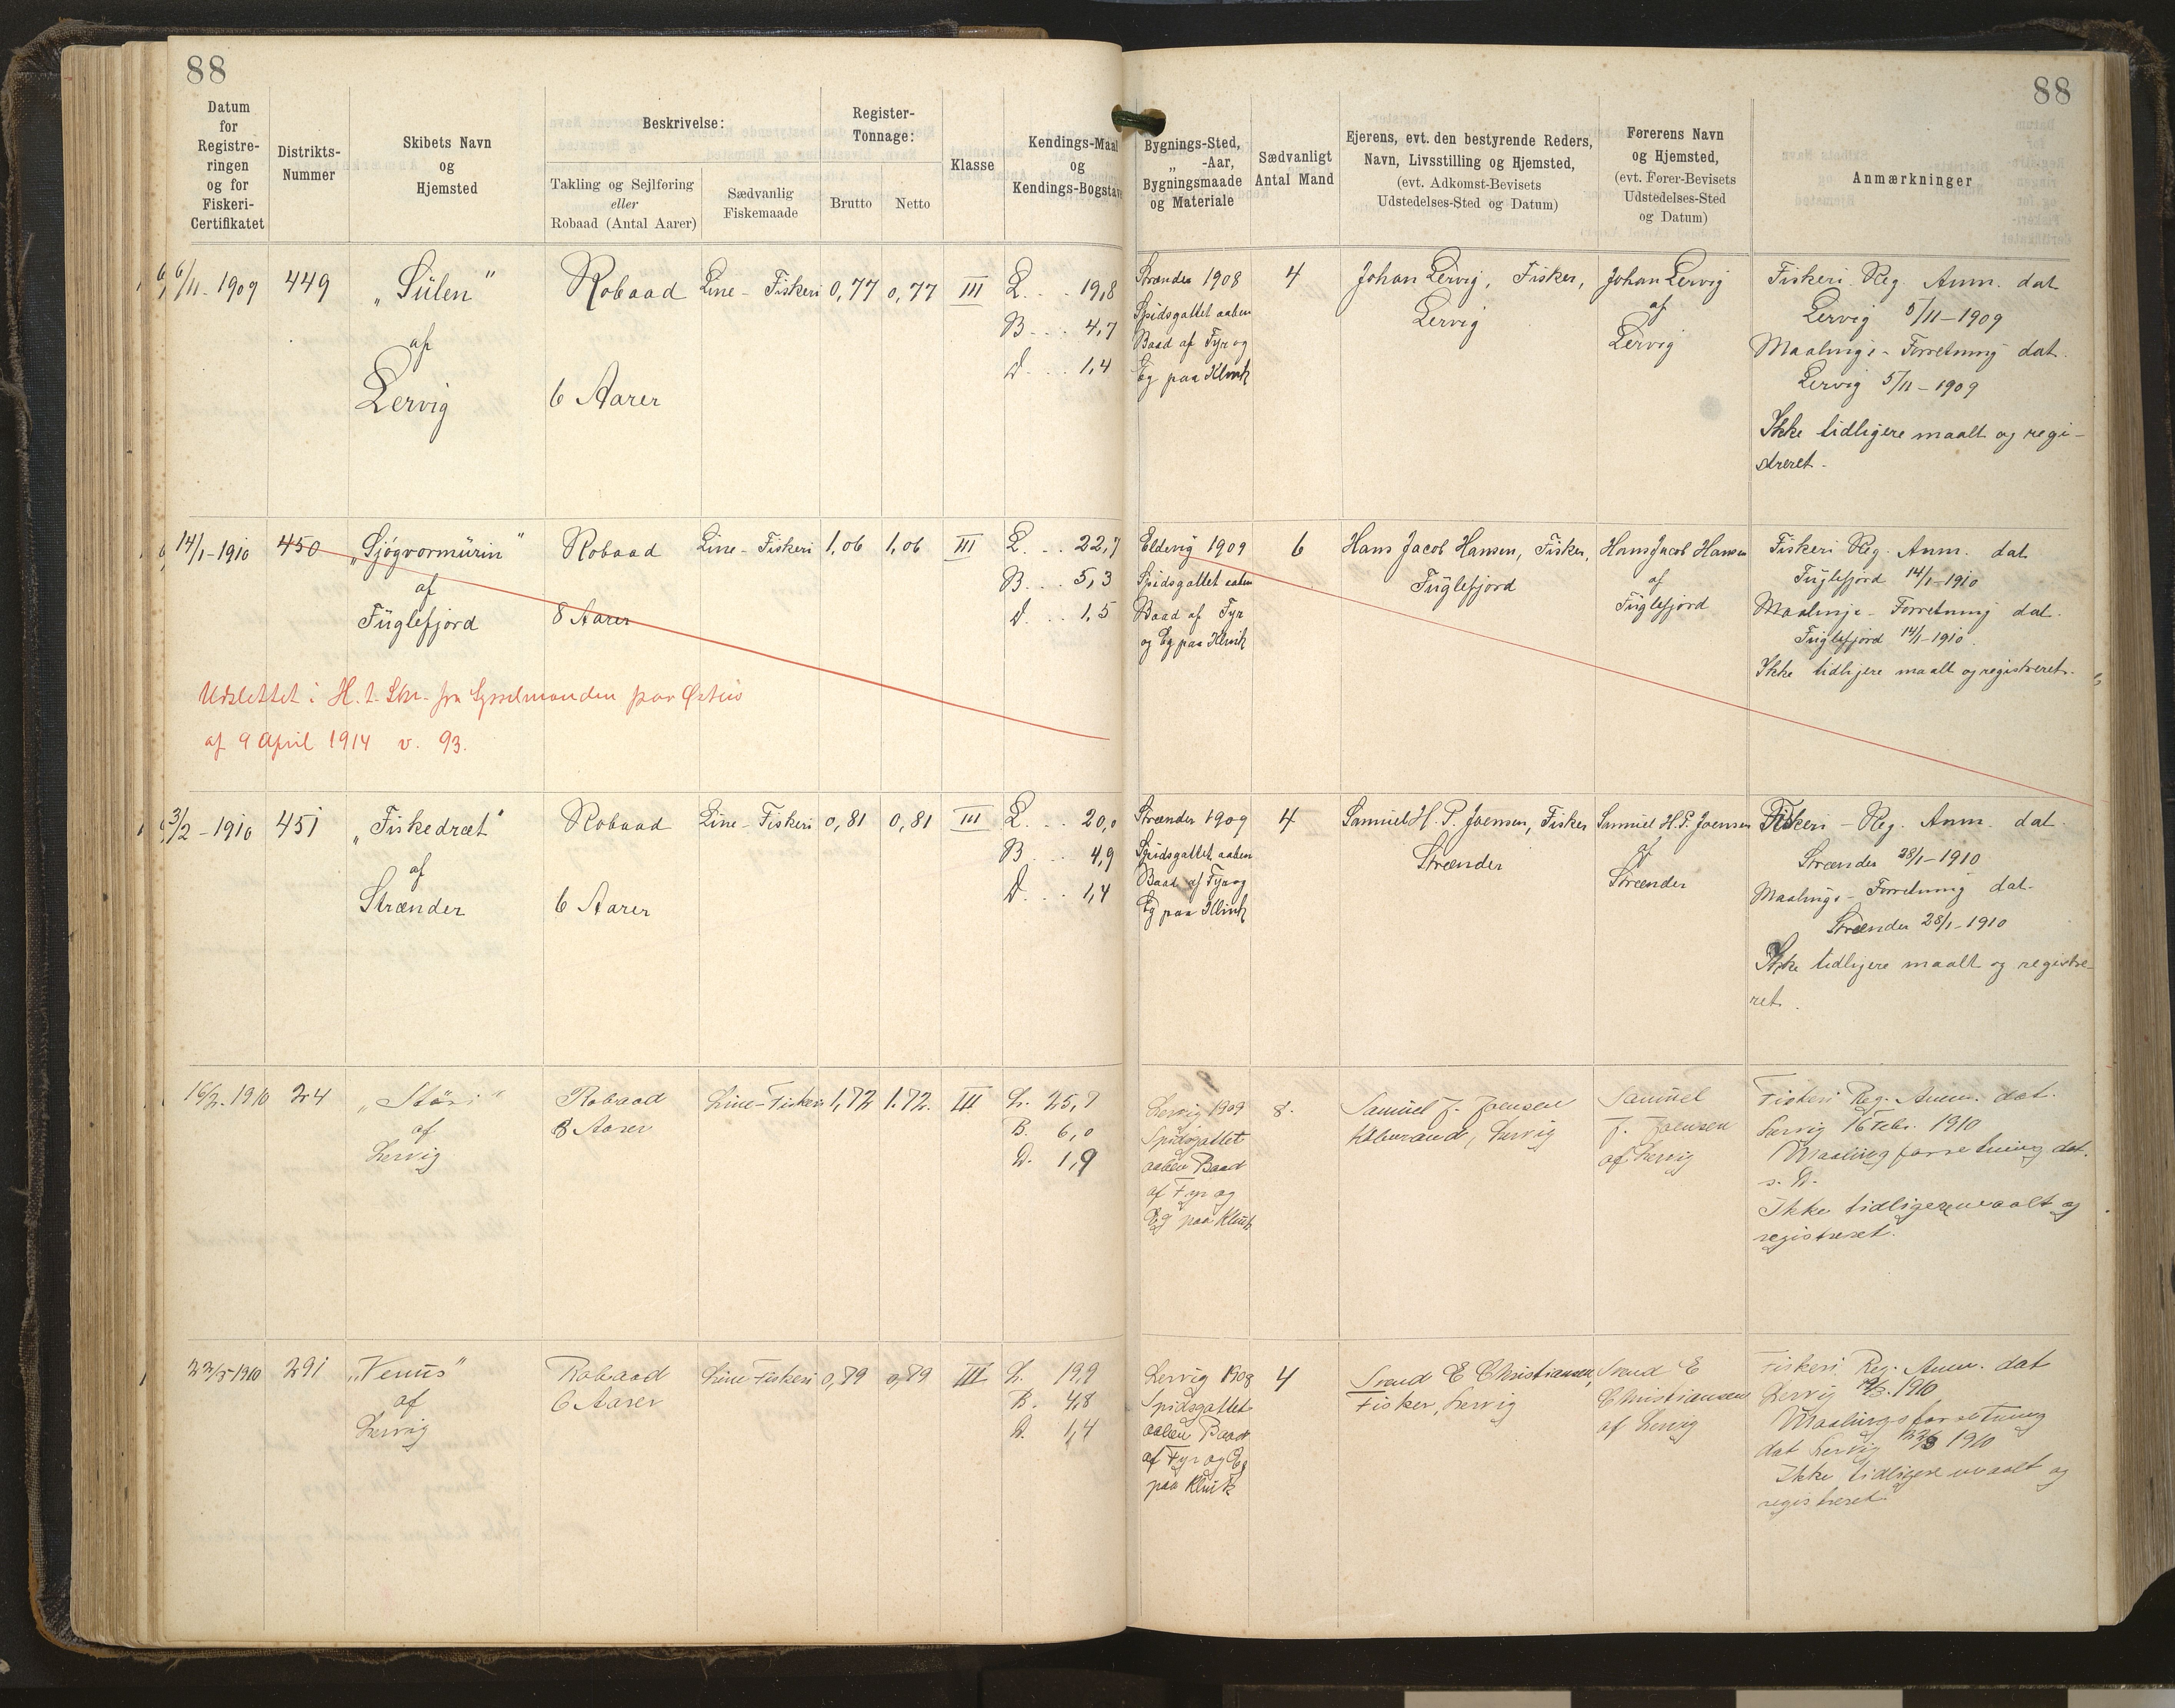 88
88
Datum for Registreringen og for Fiskeri-Certifikatet
Distrikts-Nummer
Skibets Navn og Hjemsted
Beskrivelse:
Takling og Sejlføring eller Robaad (Antal Aarer)
Sædvanlig Fiskemaade
Register-Tonnage:
Brutto
Netto
Klasse
Kendings-Maal og Kendings-Bogstav
Bygnings-Sted, „ -Aar, Bygningsmaade og Materiale
Sædvanligt Antal Mand
Ejerens, evt. den bestyrende Reders, Navn, Livsstilling og Hjemsted, (evt. Adkomst-Bevisets Udstedelses-Sted og Datum)
Førerens Navn og Hjemsted, (evt. Fører-Bevisets Udstedelses-Sted og Datum)
Anmærkninger
6/11-1909
449
„Sülen"
af
Lervig
Robaad
6 Aarer
Line-Fiskeri
0,77
0,77
III
L. . . 19,8
B. . . 4,7
D. . . 1,4
Strænder 1908
Spidsgattet aaben
Baad af Fyr og
Eg paa Klink
4
Johan Lervig, Fisker,
Lervig
Johan Lervig
af
Lervig
Fiskeri Reg. Anm. dat
Lervig 5/11-1909
Maalings-Forretning dat.
Lervig 5/11-1909
Ikke tidligere maalt og regi-
streret.
14/1-1910
450
„Sjógvormürin"
af
Füglefjord
Robaad
8 Aarer
Line-Fiskeri
1,06
1,06
III
L. . . 22,7
B. . . 5,3
D. . . 1,5
Eldevig 1909
Spidsgattet aaben
Baad af Fyr
og Eg paa Klink
6
Hans Jacob Hansen, Fisker,
Füglefjord
Hans Jacob Hansen
af
Füglefjord
Fiskeri Reg. Anm. dat
Füglefjord 14/1-1910
Maalings-Forretning dat.
Füglefjord 14/1-1910.
Ikke tidligere maalt og registreret.
Udslettet i H. t. Skr. fra Sysselmanden paa Østerø
af 9 April 1914 v. 93.
3/2-1910
451
„Fiskedræt"
af
Strænder
Robaad
6 Aarer
Line-Fiskeri
0,81
0,81
III
L. . . 20,0
B. . . 4,9
D. . . 1,4
Strænder 1909
Spidsgattet aaben
Baad af Fyr og
Eg paa Klink
4
Samuel H. P. Joensen, Fisker
Strænder
Samuel H. P. Joensen
af
Strænder
Fiskeri-Reg. Anm. dat.
Strænder 28/1-1910
Maalings-Forretning dat.
Strænder 28/1-1910
Ikke tidligere maalt og registre-
ret.
16/2-1910
24
af
Lervig
Robaad
8 Aarer
Line-Fiskeri
1,72
1.72.
III
L. 25,7
B. 6,0
D. 1,9
Lervig 1909
Spidsgattet
aaben Baad
af Fyr og
Eg paa Klink
8.
Samüel J. Joensen
Købmand, Lervig
Samüel
J. Joensen
af Lervig
Fiskeri Reg. Anm. dat.
Lervig 16 Febr. 1910
Maalingsforretning dat.
s. D.
Ikke tidligere maalt og
registreret.
22/3-1910
291
„Venüs"
af
Lervig
Robaad
6 Aarer
Line-Fiskeri
0,79
0,79
III
L. 19,9
B. 4,8
D. 1,4
Lervig 1908
Spidsgattet
aaben Baad
af Fyr og Eg
paa Klink
4
Svend E Christiansen,
Fisker, Lervig
Svend E
Christiansen
af Lervig
Fiskeri Reg. Anm. dat
Lervig 1910
Maalingsforretning
dat Lervig 22/3 1910
Ikke tidligere maalt og
registreret.